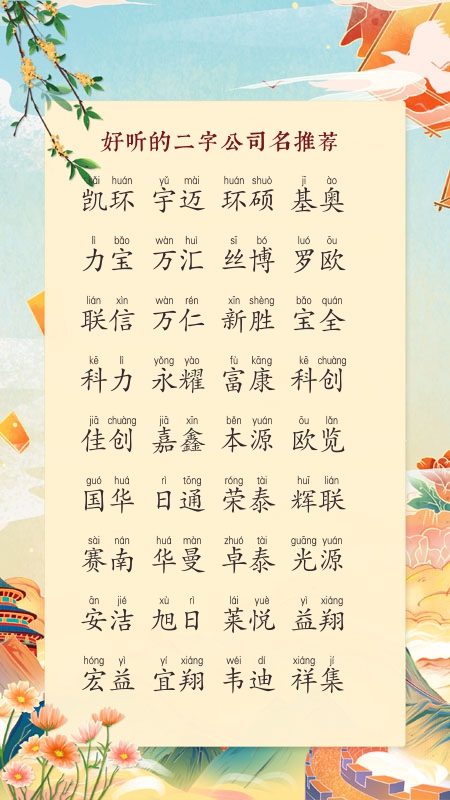 好听的二字公司名推荐
kǎi huán yǔ mài huán shuò jī ào
凯环 宇迈 环硕 基奥
lì bǎo wàn huì sī bó luó ōu
力宝 万汇 丝博 罗欧
lián xìn wàn rén xīn shèng bǎo quán
联信 万仁 新胜 宝全
kē lì yǒng yào fù kāng kē chuàng
科力 永耀 富康 科创
jiā chuàng jiā xīn běn yuán ōu lǎn
佳创 嘉鑫 本源 欧览
guó huá rì tōng róng tài huī lián
国华 日通 荣泰 辉联
sài nán huá màn zhuó tài guāng yuán
赛南 华曼 卓泰 光源
ān jié xù rì lái yuè yì xiáng
安洁 旭日 莱悦 益翔
hóng yì yí xiáng wéi dí xiáng jí
宏益 宜翔 韦迪 祥集